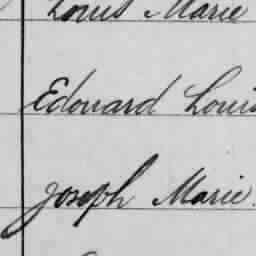 Louis Marie
Edouard Louis
Joseph Marie.